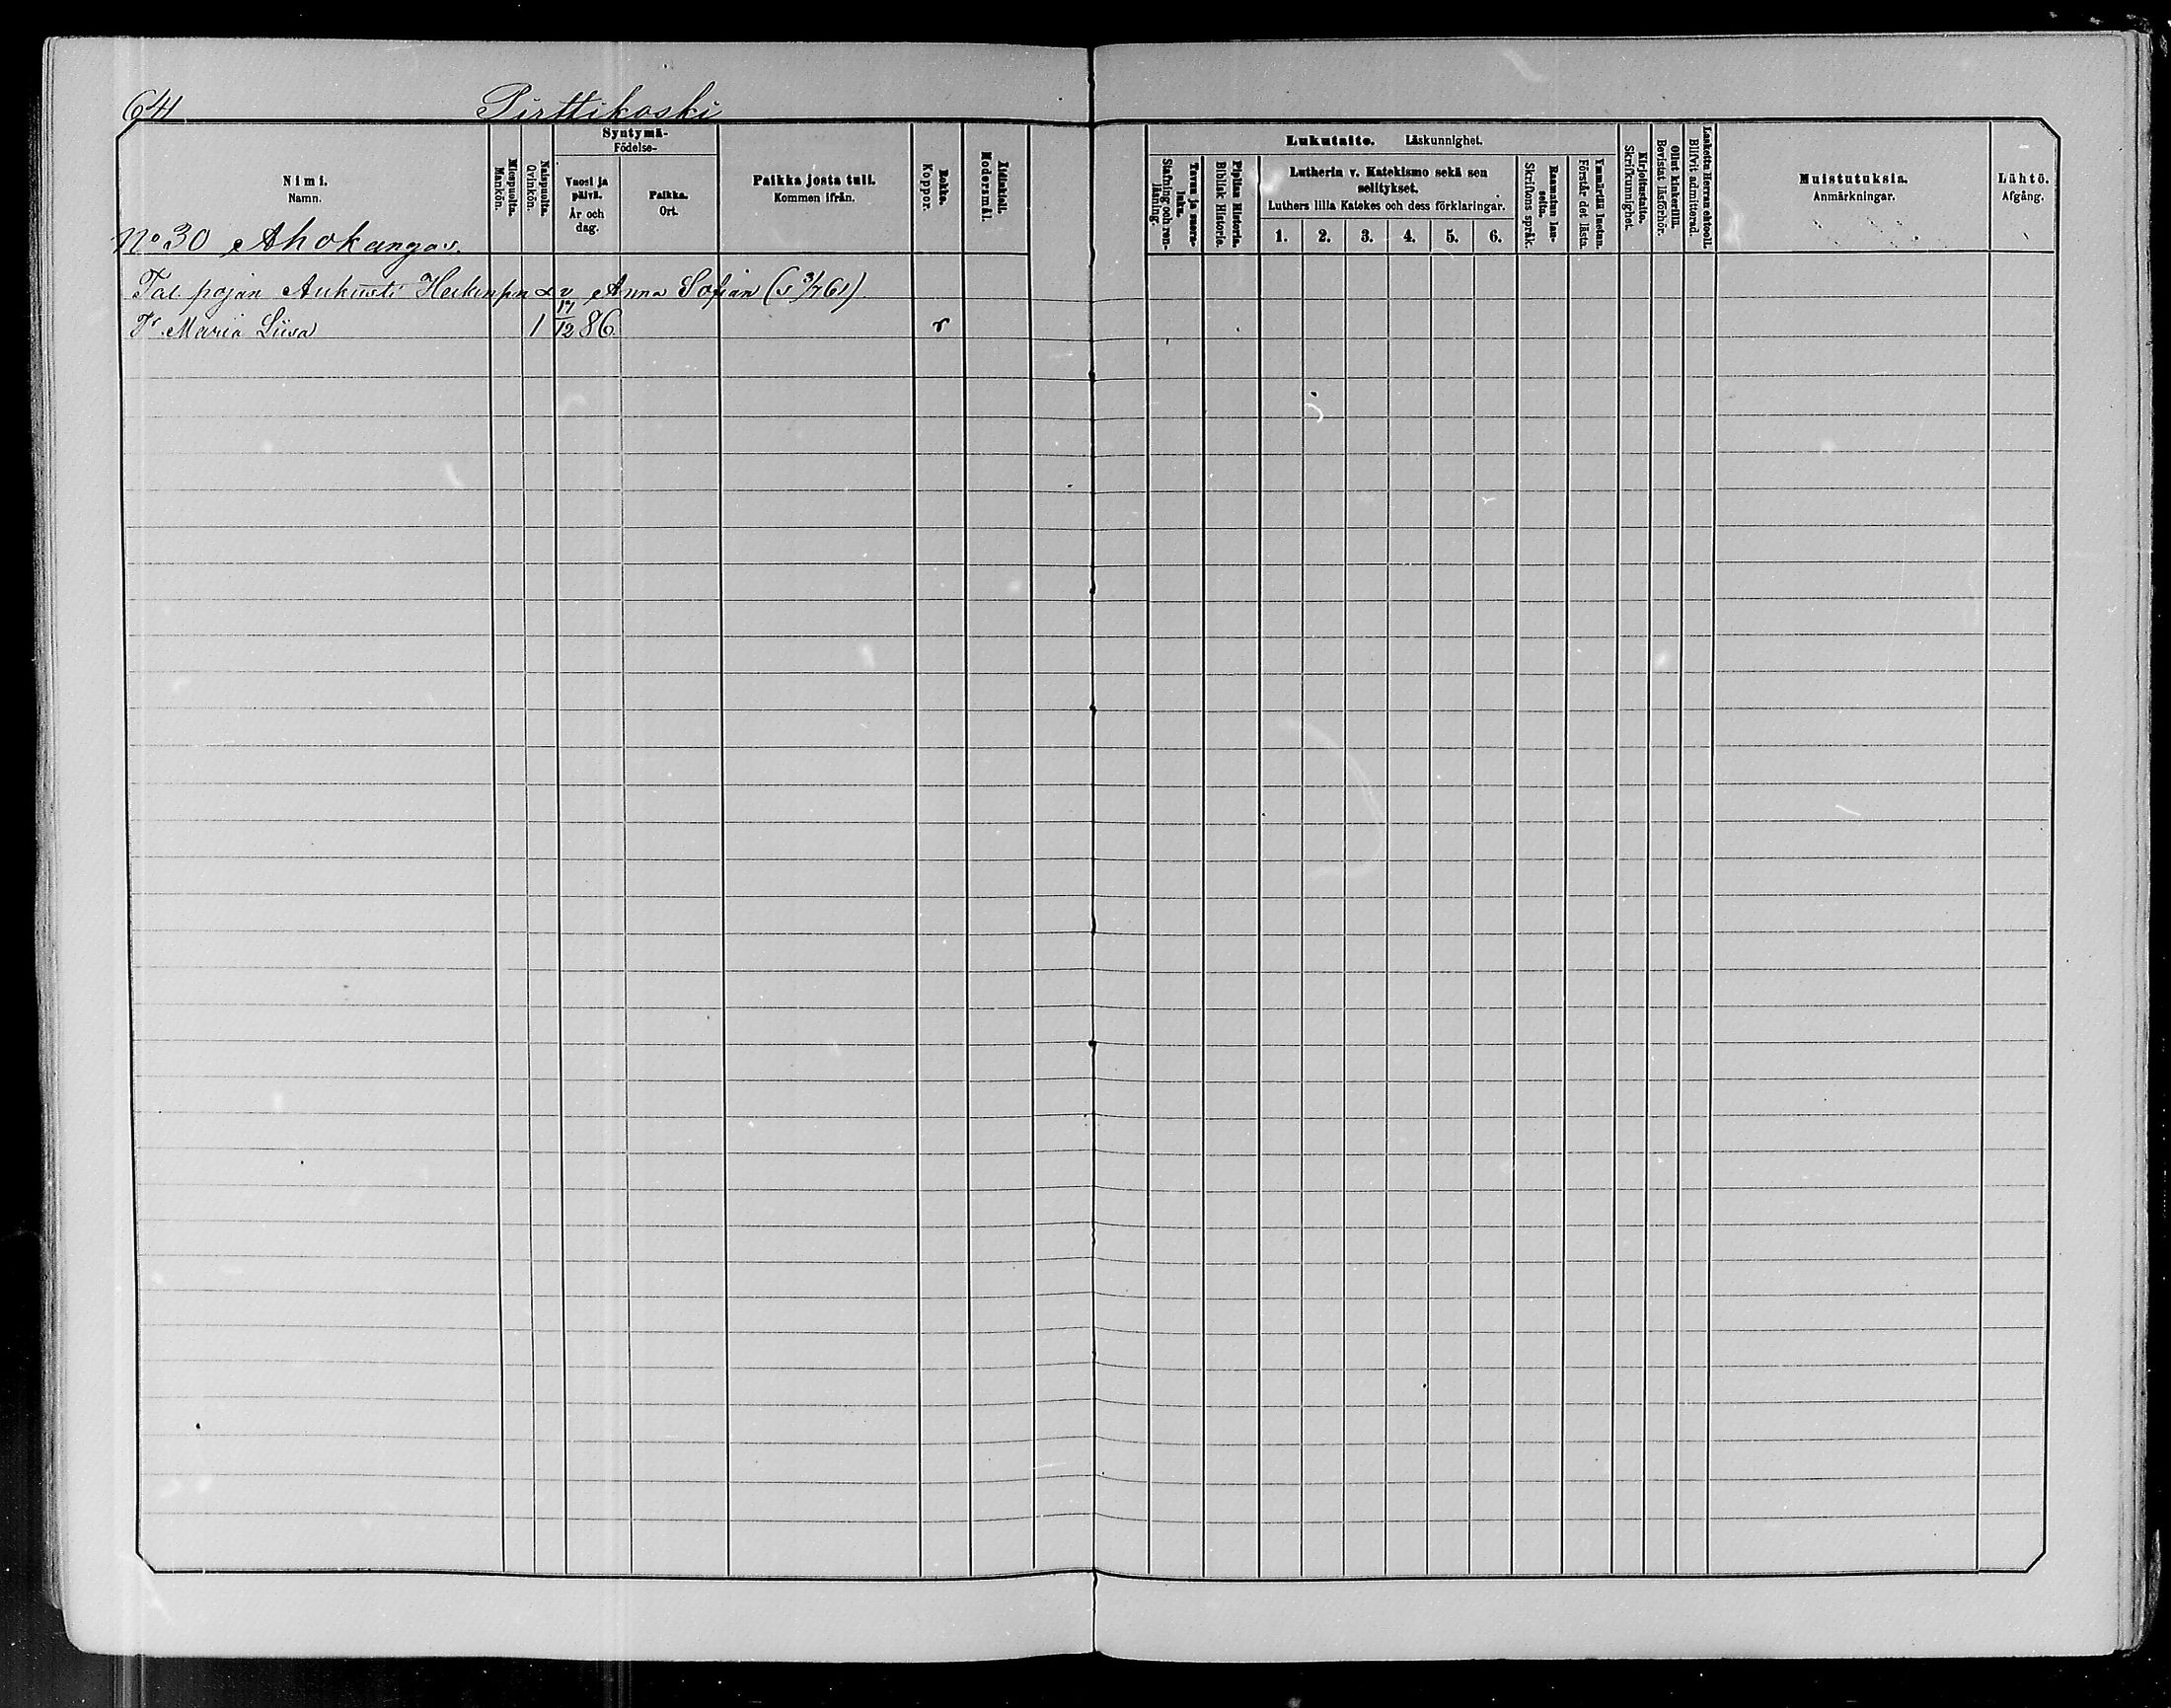 64 Pirttikoski
Nimi.
Namn.
Miespuolta.
Mankön.
Naispuolta.
Qvinkön.
Syntymä-
Födelse-
Vuosi ja päivä.
År och dag.
Paikka.
Ort.
Paikka josta tuli.
Kommen ifrån.
Rokko.
Koppor.
Äidinkieli.
Modersmål.
Lukutaito. Läskunnighet.
Tavaa ja suora-luku.
Stafning och ren-läsning.
Piplian Historia.
Biblisk Historie.
Lutherin v. Katekismo sekä sen selitykset.
Luthers lilla Katekes och dess förklaringar.
1. 2. 3. 4. 5. 6.
Raamatun lau-seita.
Skriftens språk.
Ymmärtää luetun.
Förstår det lästa.
Kirjoitustaito.
Skrifkunnighet.
Ollut kinkerillä.
Bevistat läsförhör.
Laskettu Herran ehtooll.
Blifvit admitterad.
Muistutuksia.
Anmärkningar.
Lähtö.
Afgång.
No 30 Ahokangas.
Tal. pojan Aukusti Heikinpn v Anna Sofian (s 3/7 61)
Tr Maria Liisa 1 17/12 86 r